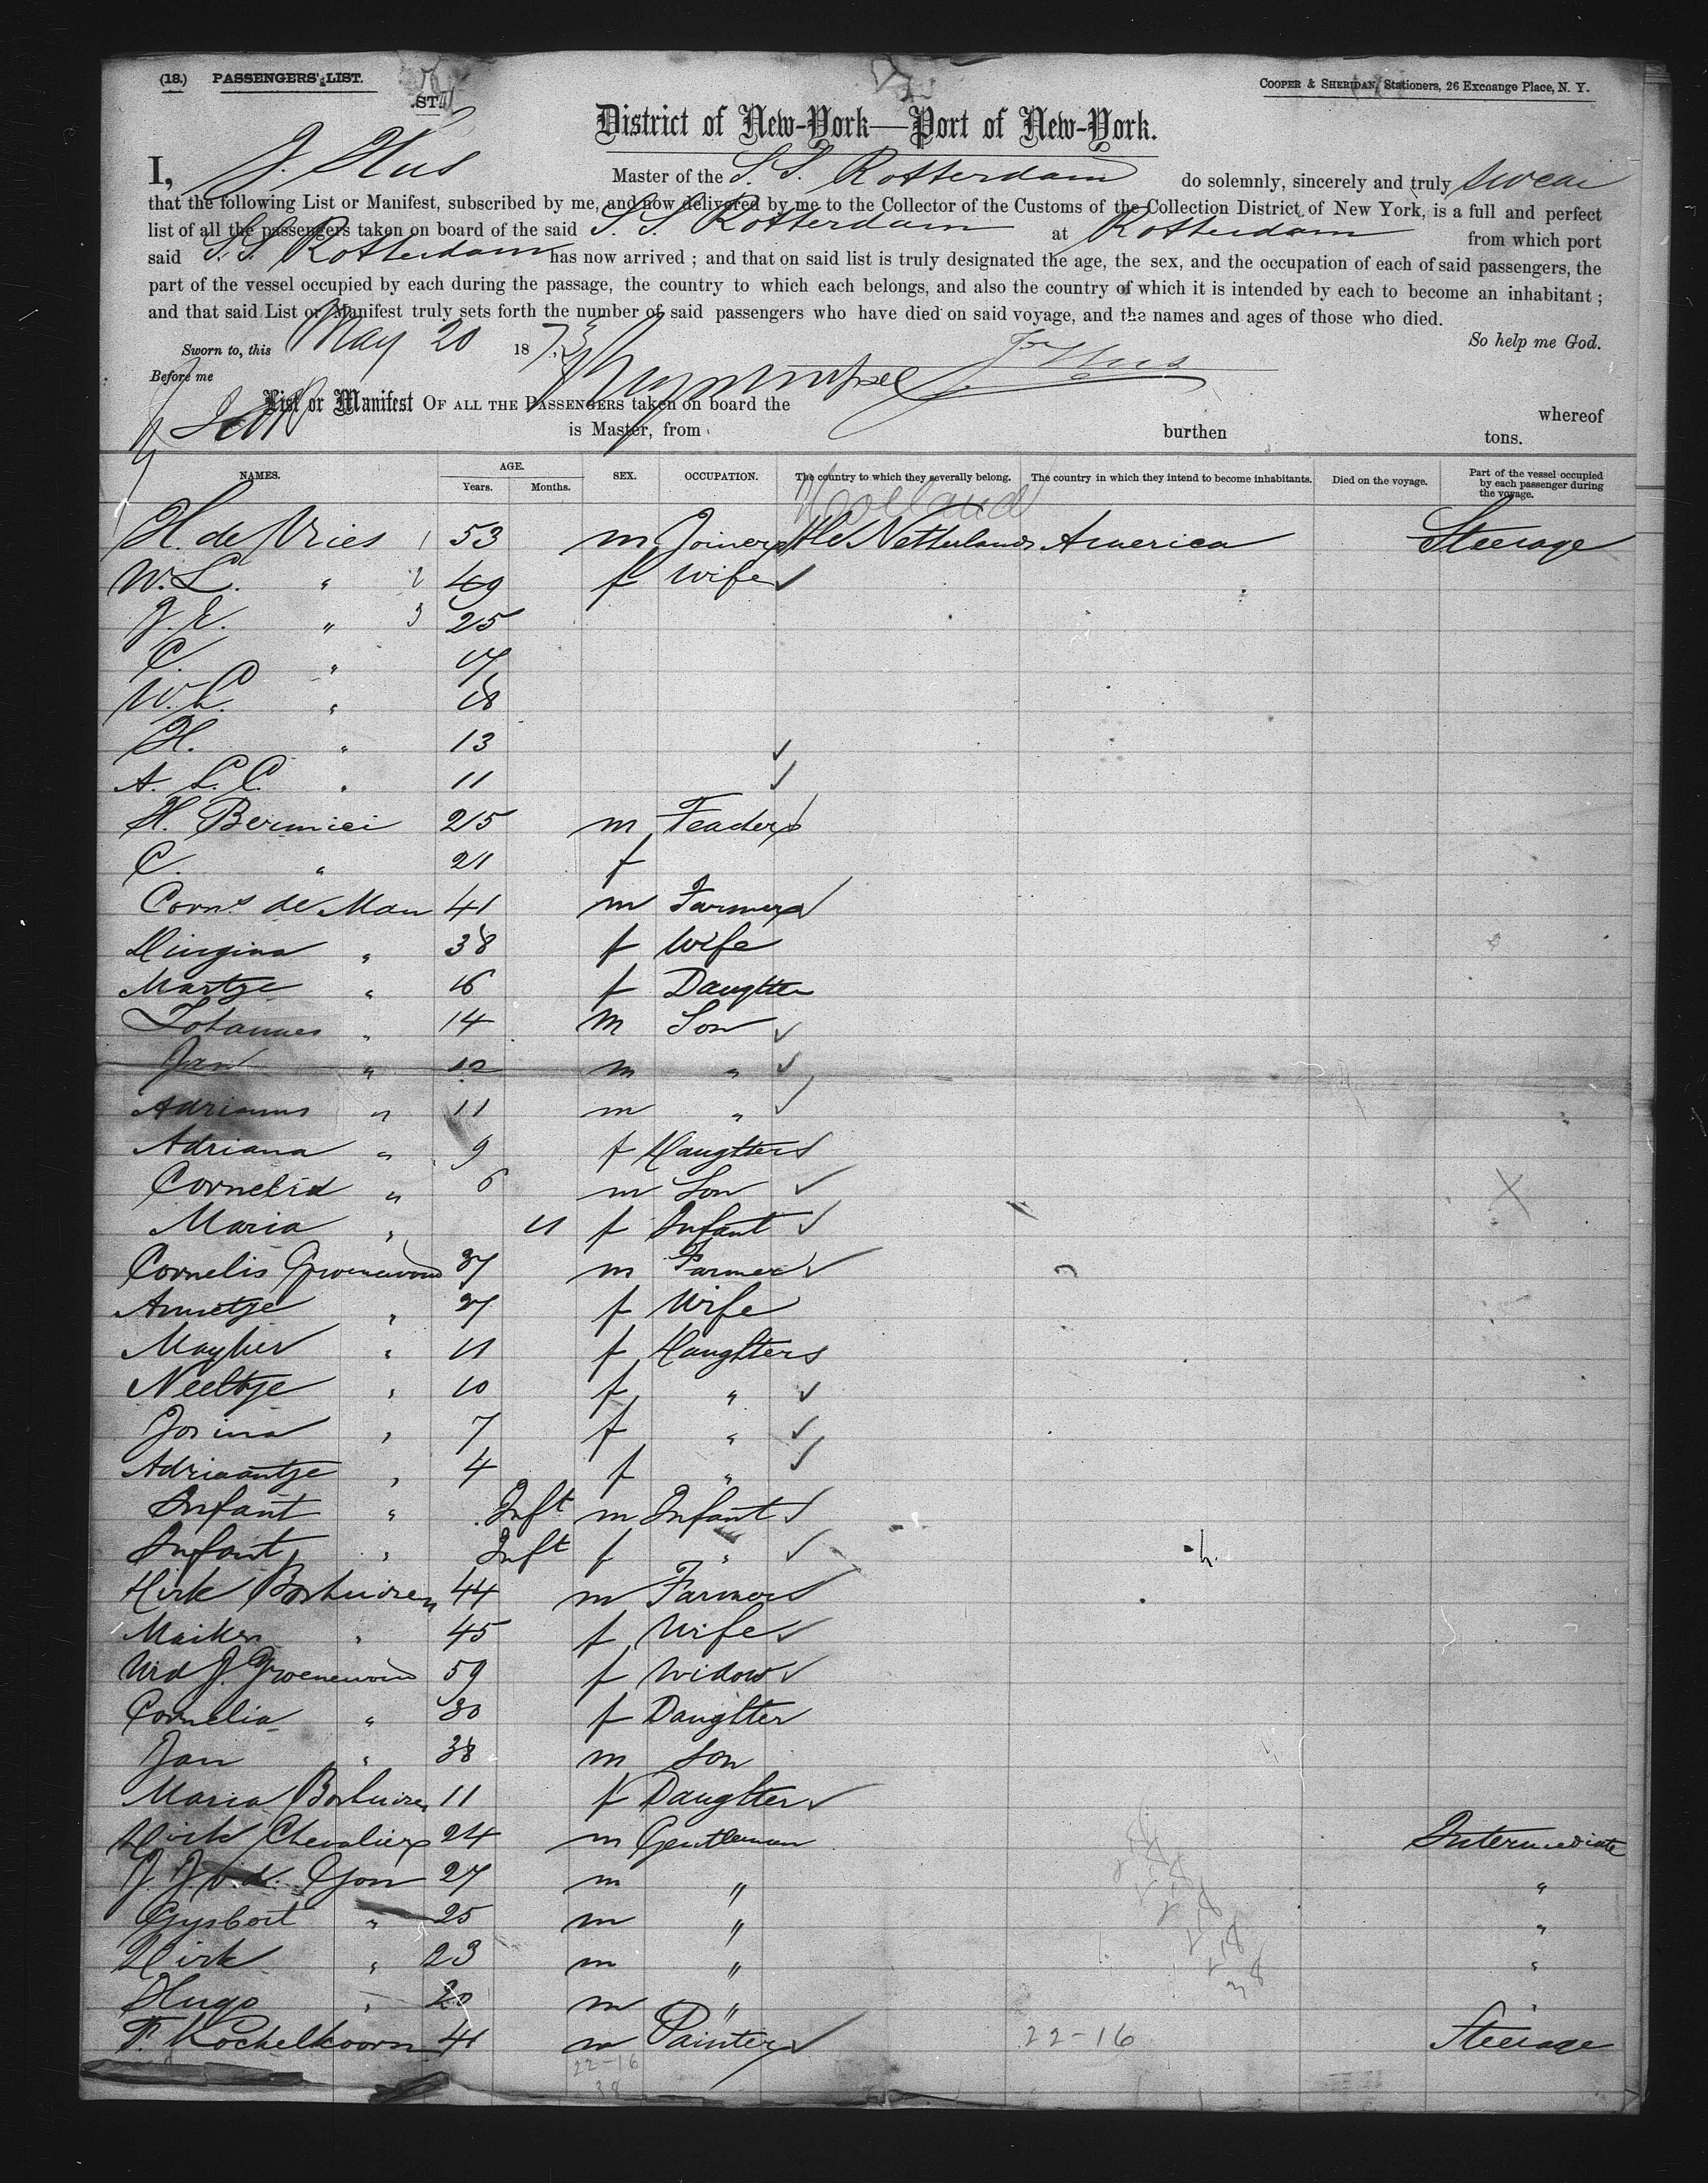 (18.) PASSENGERS' LIST.
COOPER & SHERIDAN, Stationers, 26 Excnange Place, N. Y.
ST
District of New-York—Port of New-York.
I, J. Hus Master of the S.S. Rotterdam do solemnly, sincerely and truly swear
that the following List or Manifest, subscribed by me, and now delivered by me to the Collector of the Customs of the Collection District of New York, is a full and perfect
list of all the passengers taken on board of the said S.S. Rotterdam at Rotterdam from which port
said S.S. Rotterdam has now arrived ; and that on said list is truly designated the age, the sex, and the occupation of each of said passengers, the
part of the vessel occupied by each during the passage, the country to which each belongs, and also the country of which it is intended by each to become an inhabitant ;
and that said List or Manifest truly sets forth the number of said passengers who have died on said voyage, and the names and ages of those who died.
So help me God.
Sworn to, this May 20 1873
J Hus
Before me
List or Manifest OF ALL THE PASSENGERS taken on board the whereof
is Master, from burthen tons.
NAMES. AGE. Years. Months. SEX. OCCUPATION. The country to which they severally belong. The country in which they intend to become inhabitants. Died on the voyage. Part of the vessel occupied by each passenger during the voyage.
Holland
H. de Vries 1 53 m Joiner the Netherlands America Steerage
W. L. " 2 49 f Wife
J. E. " 3 25
C. " 17
W. L. " 18
H. " 13
A. L. C. " 11
H. Bermiei 25 m Teacher
C. " 21 f
Corns de Man 41 m Farmer
Dingina " 38 f Wife
Martje " 16 f Daugtter
Johannes " 14 m Son
Jan " 12 m "
Adrianus " 11 m "
Adriana " 9 f Daugtter
Cornelis " 6 m Son
Maria " 11 f Infant
Cornelis Groenewoud 37 m Farmer
Annetje " 37 f Wife
" 11 f Daugtters
Neeltje " 10 f "
Jorina " 7 f "
Adriaantje " 4 f "
Infant " Inft m Infant
Infant " Inft f "
Dirk 44 m Farmer
Maiken " 45 f Wife
Wid J. Groenewoud 59 f Widow
Cornelia " 30 f Daugtter
Jan " 38 m Son
Maria 11 f Daugtter
Dirk Chevalier 24 m Gentleman Intermediate
J. J. v. d. Gon 27 m " "
Gysbert " 25 m " "
Dirk " 23 m " "
Hugo " 20 m " "
F. Kochelkoorn 41 m Painter 22-16 Steerage
22-16
38